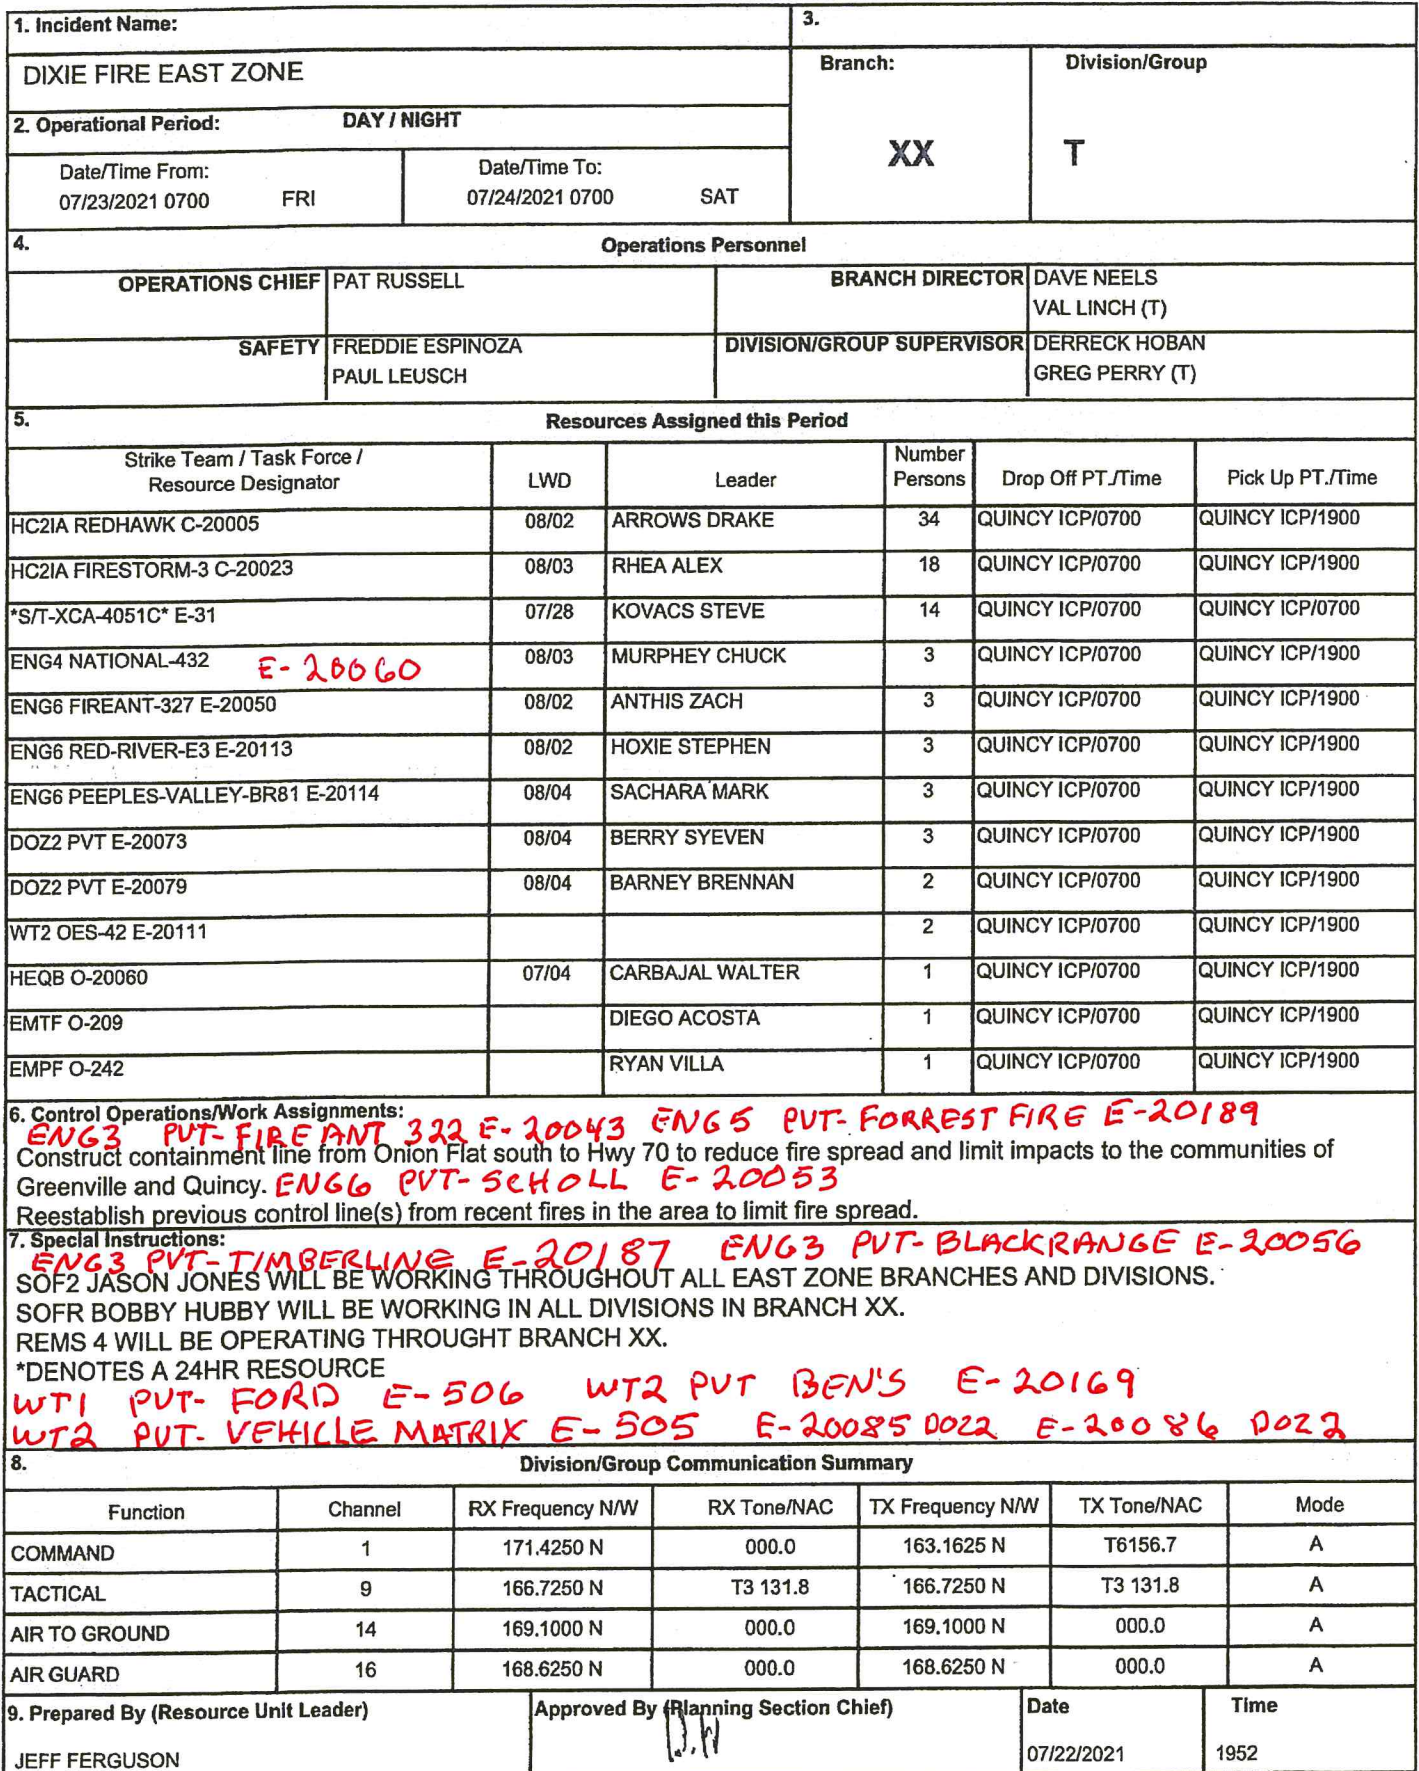 1. Incident Name:
3.
DIXIE FIRE EAST ZONE
Branch:
Division/Group
2. Operational Period: DAY / NIGHT
XX
T
Date/Time From:
07/23/2021 0700 FRI
Date/Time To:
07/24/2021 0700 SAT
4. Operations Personnel
OPERATIONS CHIEF PAT RUSSELL
BRANCH DIRECTOR DAVE NEELS
VAL LINCH (T)
SAFETY FREDDIE ESPINOZA
PAUL LEUSCH
DIVISION/GROUP SUPERVISOR DERRECK HOBAN
GREG PERRY (T)
5. Resources Assigned this Period
Strike Team / Task Force /
Resource Designator
LWD
Leader
Number
Persons
Drop Off PT./Time
Pick Up PT./Time
HC2IA REDHAWK C-20005 08/02 ARROWS DRAKE 34 QUINCY ICP/0700 QUINCY ICP/1900
HC2IA FIRESTORM-3 C-20023 08/03 RHEA ALEX 18 QUINCY ICP/0700 QUINCY ICP/1900
*S/T-XCA-4051C* E-31 07/28 KOVACS STEVE 14 QUINCY ICP/0700 QUINCY ICP/0700
ENG4 NATIONAL-432 E-20060 08/03 MURPHEY CHUCK 3 QUINCY ICP/0700 QUINCY ICP/1900
ENG6 FIREANT-327 E-20050 08/02 ANTHIS ZACH 3 QUINCY ICP/0700 QUINCY ICP/1900
ENG6 RED-RIVER-E3 E-20113 08/02 HOXIE STEPHEN 3 QUINCY ICP/0700 QUINCY ICP/1900
ENG6 PEEPLES-VALLEY-BR81 E-20114 08/04 SACHARA MARK 3 QUINCY ICP/0700 QUINCY ICP/1900
DOZ2 PVT E-20073 08/04 BERRY SYEVEN 3 QUINCY ICP/0700 QUINCY ICP/1900
DOZ2 PVT E-20079 08/04 BARNEY BRENNAN 2 QUINCY ICP/0700 QUINCY ICP/1900
WT2 OES-42 E-20111 2 QUINCY ICP/0700 QUINCY ICP/1900
HEQB O-20060 07/04 CARBAJAL WALTER 1 QUINCY ICP/0700 QUINCY ICP/1900
EMTF O-209 DIEGO ACOSTA 1 QUINCY ICP/0700 QUINCY ICP/1900
EMPF O-242 RYAN VILLA 1 QUINCY ICP/0700 QUINCY ICP/1900
6. Control Operations/Work Assignments:
ENG3 PVT-FIREANT 322 E-20043 ENG5 PVT-FORREST FIRE E-20189
Construct containment line from Onion Flat south to Hwy 70 to reduce fire spread and limit impacts to the communities of
Greenville and Quincy. ENG6 PVT-SCHOLL E-20053
Reestablish previous control line(s) from recent fires in the area to limit fire spread.
7. Special Instructions:
ENG3 PVT-TIMBERLINE E-20187 ENG3 PVT-BLACKRANGE E-20056
SOF2 JASON JONES WILL BE WORKING THROUGHOUT ALL EAST ZONE BRANCHES AND DIVISIONS.
SOFR BOBBY HUBBY WILL BE WORKING IN ALL DIVISIONS IN BRANCH XX.
REMS 4 WILL BE OPERATING THROUGHT BRANCH XX.
*DENOTES A 24HR RESOURCE
WT1 PVT-FORD E-506 WT2 PVT BEN'S E-20169
WT2 PVT-VEHICLE MATRIX E-505 E-20085 DOZ2 E-20086 DOZ2
8. Division/Group Communication Summary
Function Channel RX Frequency N/W RX Tone/NAC TX Frequency N/W TX Tone/NAC Mode
COMMAND 1 171.4250 N 000.0 163.1625 N T6156.7 A
TACTICAL 9 166.7250 N T3 131.8 166.7250 N T3 131.8 A
AIR TO GROUND 14 169.1000 N 000.0 169.1000 N 000.0 A
AIR GUARD 16 168.6250 N 000.0 168.6250 N 000.0 A
9. Prepared By (Resource Unit Leader)
JEFF FERGUSON
Approved By (Planning Section Chief)
Date
07/22/2021
Time
1952